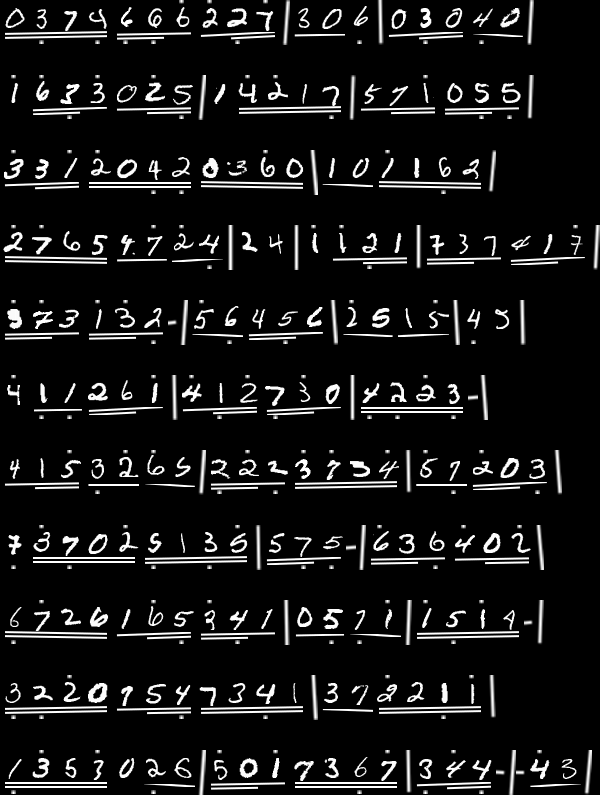 0374 666 227 | 306 | 030 40 |
1 633 025 | 1 4217 | 571 055 |
331 2042 0360 | 10 1162 |
2765 47 24 | 24 | 1 121 | 737 417 |
373 132 - | 56 456 | 25 15 | 45 |
4 11 261 | 412 730 | 4223 - |
415 32 65 | 222 3734 | 51 203 |
7 3702 5135 | 575 - | 636 402 |
6726 165 341 | 05 71 | 1514 - |
3220 154 7341 | 37 2211 |
1353 02 6 | 501 7367 | 344 - | - 43 |